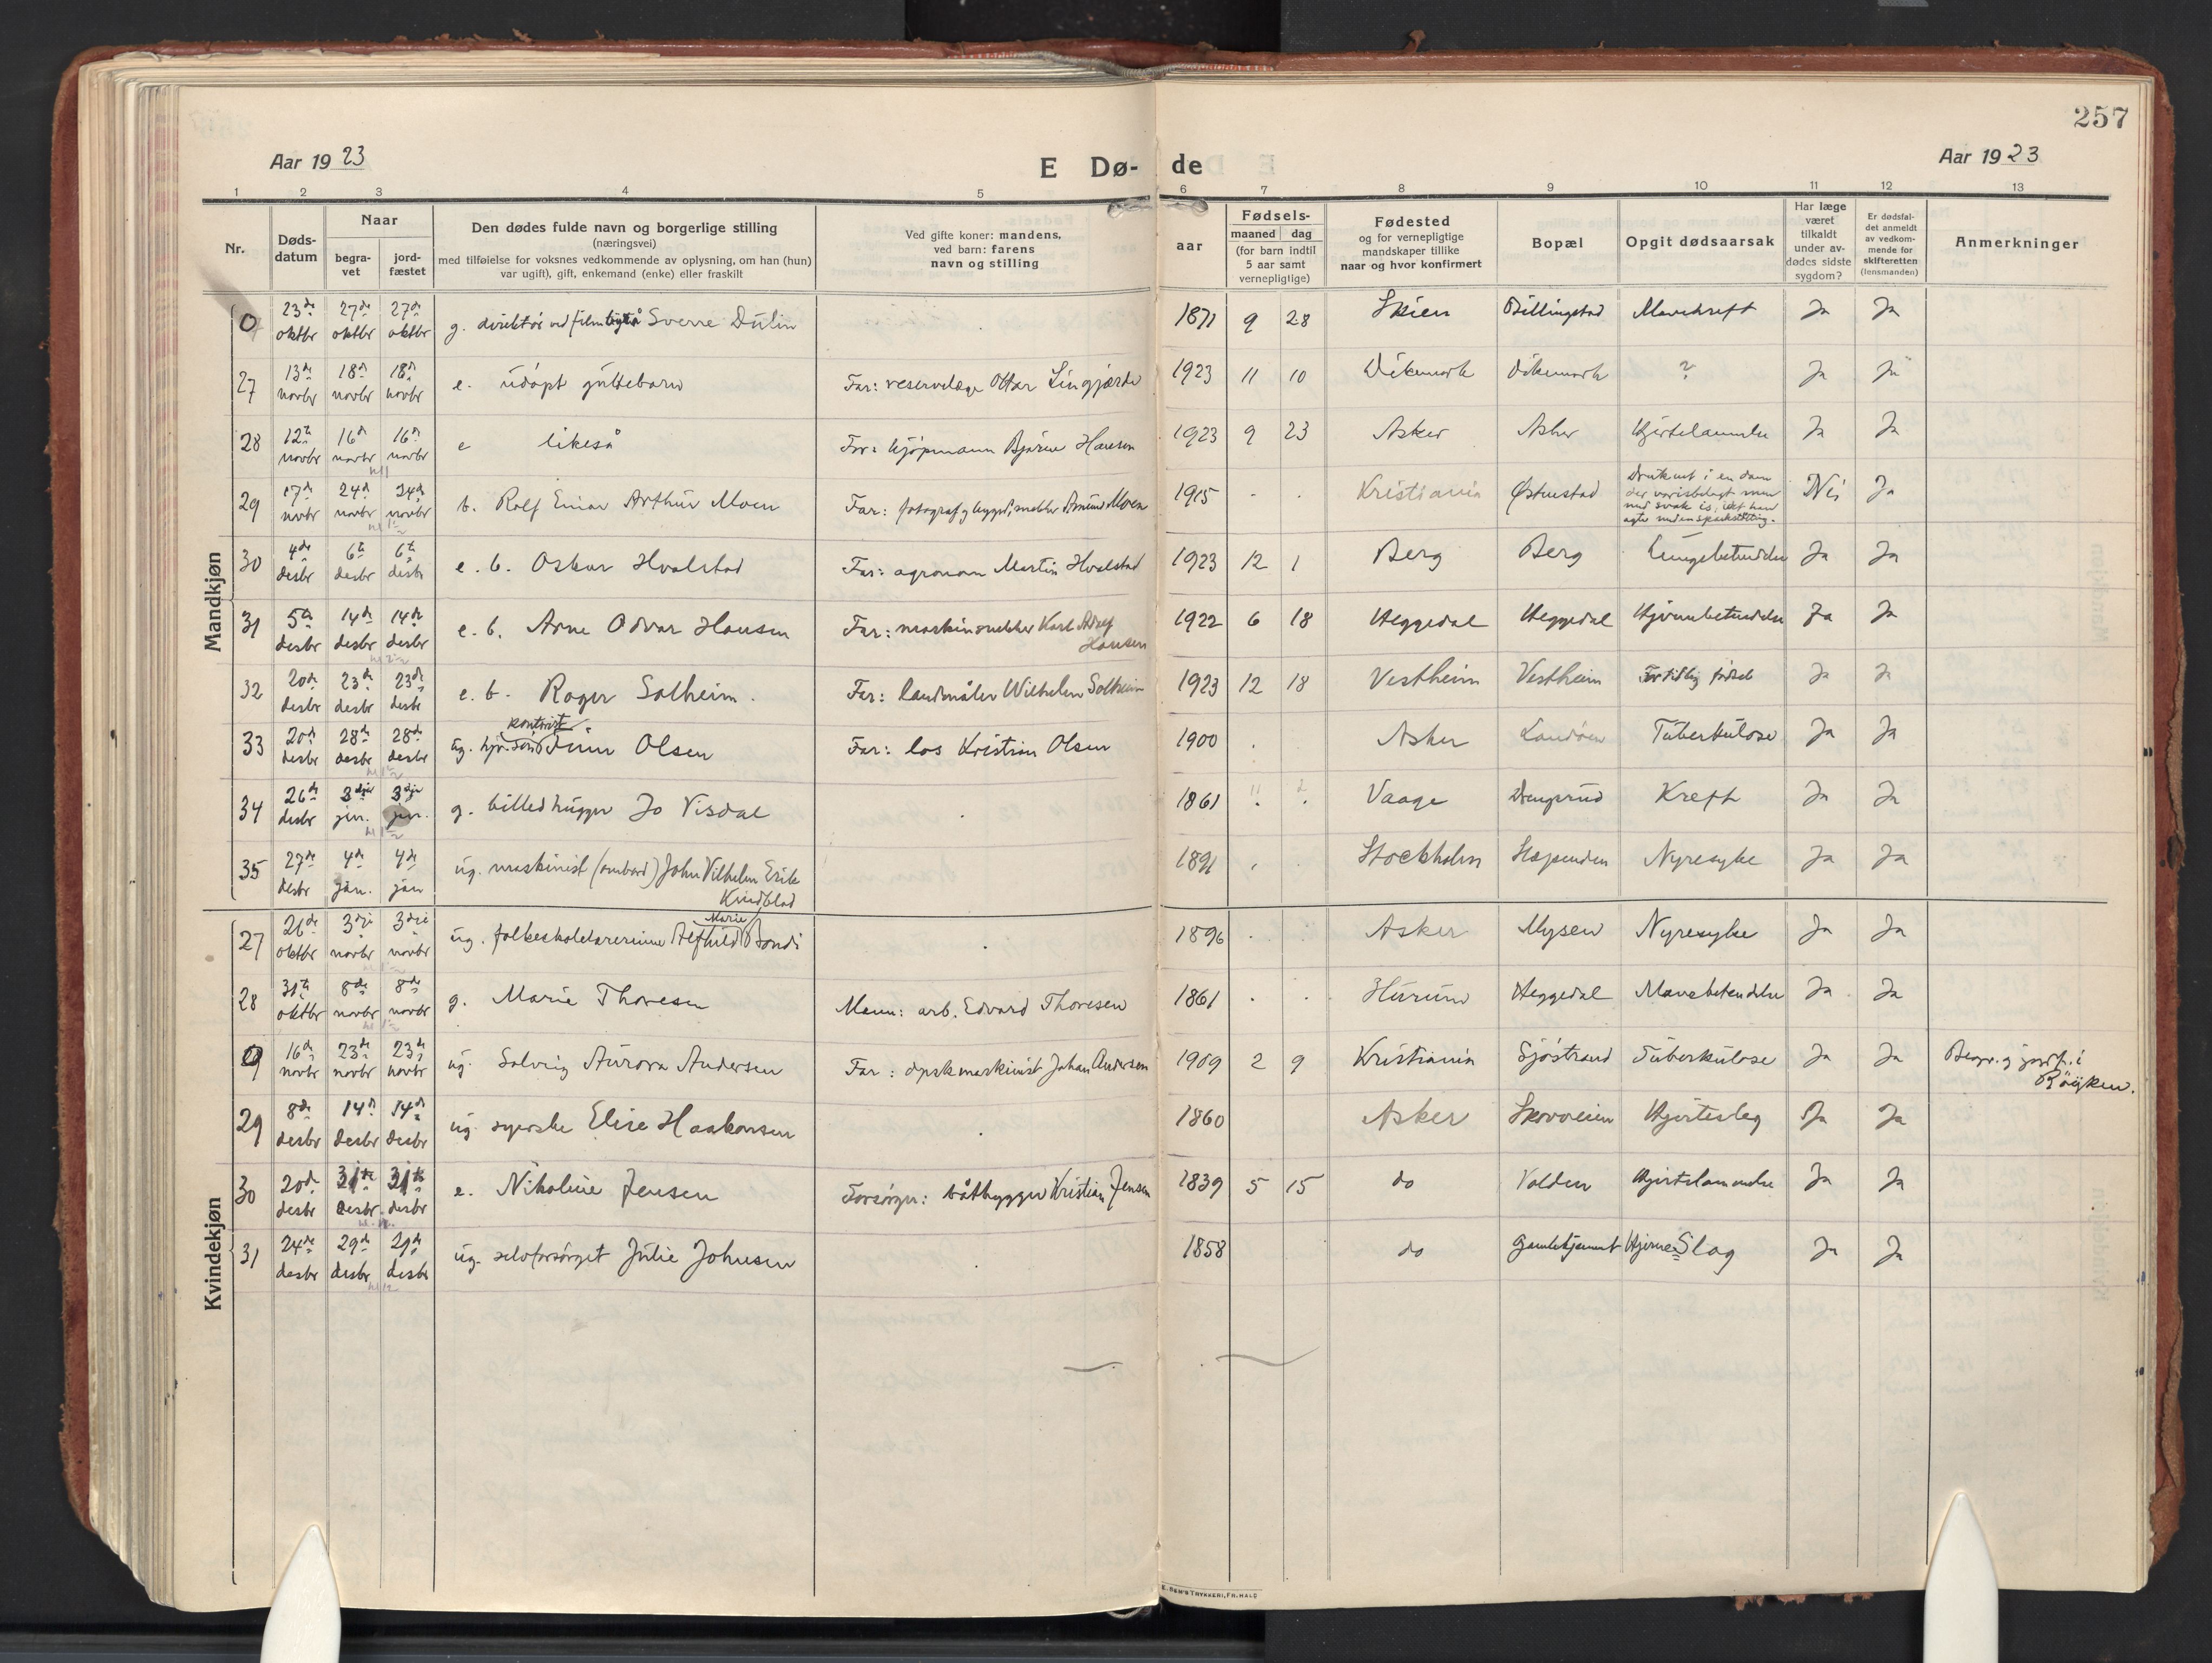 257
Aar 1923
E Dø-
de
Aar 1923
1 2 3 4 5 6 7 8 9 10 11 12 13
Nr.
Døds-
datum
Naar
begra-
vet
jord-
fæstet
Den dødes fulde navn og borgerlige stilling
(næringsvei)
med tilføielse for voksnes vedkommende av oplysning, om han (hun)
var ugift), gift, enkemand (enke) eller fraskilt
Ved gifte koner: mandens,
ved barn: farens
navn og stilling
aar
Fødsels-
maaned dag
(for barn indtil
5 aar samt
vernepligtige)
Fødested
og for vernepligtige
mandskaper tillike
naar og hvor konfirmert
Bopæl
Opgit dødsaarsak
Har læge
været
tilkaldt
under av-
dødes sidste
sygdom?
Er dødsfal-
det anmeldt
av vedkom-
mende for
skifteretten
(lensmanden)
Anmerkninger
Mandkjøn
0 23de oktbr 27de oktbr 27de oktbr g. direktør ved film Sverre Dulin 1871 9 28 Skien Billingstad Mavekreft Ja Ja
27 13de novbr 18de novbr 18de novbr e. udøpt guttebarn Far: reservelæge Ottar Lingjærde 1923 11 10 Dikemark Dikemark ? Ja Ja
28 12te novbr 16de novbr 16de novbr e likeså Far: kjøpmann Bjarne Hansen 1923 9 23 Asker Asker Hjertelammelse Ja Ja
29 17de novbr 24de novbr 24de novbr b. Rolf Einar Arthur Moen Far: fotograf og byggm. snekker Amund Moen 1915 Kristiania Østenstad Druknet i en dam der var isbelagt men med svak is, idet han agte uten sparkstøtting. Nei Ja
30 4de desbr 6te desbr 6te desbr e. b. Oskar Hvalstad Far: agronom Martin Hvalstad 1923 12 1 Berg Berg Lungebetendelse Ja Ja
31 5te desbr 14de desbr 14de desbr e. b. Arne Odvar Hansen Far: maskinsnekker Karl Adolf Hansen 1922 6 18 Heggedal Heggedal Hjernebetendelse Ja Ja
32 20de desbr 23de desbr 23de desbr e. b. Roger Solheim. Far: landmåler Wilhelm Solheim 1923 12 18 Vestheim Vestheim For tidlig fødsel Ja Ja
33 20de desbr 28de desbr 28de desbr ug. kontorist Finn Olsen Far: los Kristian Olsen 1900 Asker Landøen Tuberkulose Ja Ja
34 26de desbr 3dje jan. 3dje jan. g. billedhugger Jo Visdal 1861 11 2 Vaage Kreft Ja Ja
35 27de desbr 4de jan. 4de jan ug. maskinist (ombord) John Vilhelm Erik Kindblad 1891 Stockholm Slependen Nyresyke Ja Ja
Kvindekjøn
27 26de oktbr 3dje novbr 3dje novbr ug. folkeskolelærerinne Alfhild Marie Bondi 1896 Asker Mysen Nyresyke Ja Ja
28 31te oktbr 8de novbr 8de novbr g. Marie Thoresen Mann: arb. Edvard Thoresen 1861 Hurum Heggedal Mavebetendelse Ja Ja
0 16de novbr 23de novbr 23de novbr ug. Solveig Aurora Andersen Far: opsk. maskinist Johan Andersen 1909 2 9 Kristiania Sjøstrand Tuberkulose Ja Ja Begr. og jordf. i Røyken.
29 8de desbr 14de desbr 14de desbr ug. syerske Elise Haakonsen 1860 Asker Skovveien Hjerteslag Ja Ja
30 20de desbr 31te desbr. 31te desbr e. Nikoline Jensen Forsørger: båtbygger Kristian Jensen 1839 5 15 do Volden Hjertelammelse Ja Ja
31 24de desbr 29de desbr 29de desbr ug. selvforsørget Julie Johnsen 1858 do Gamlehjemmet Hjerneslag Ja Ja